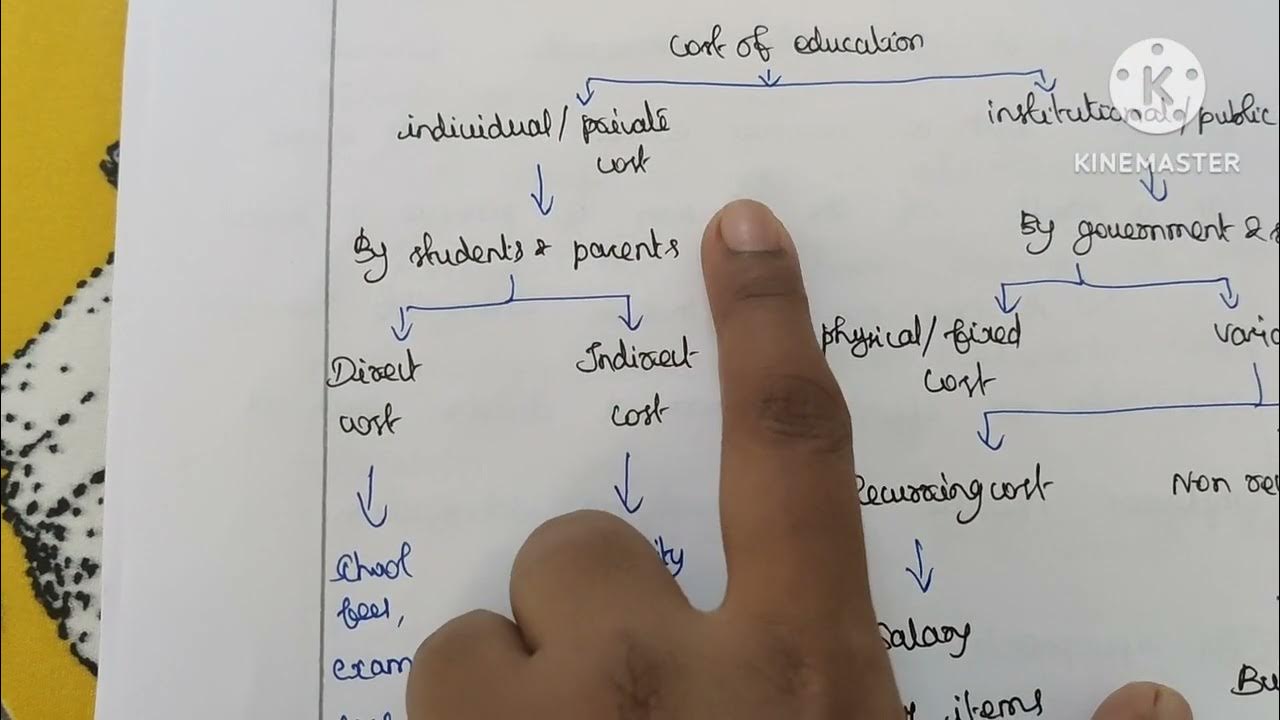 cost of education
individual/ private
cost
institutional/ public
KINEMASTER
By students & parents
By government &
Direct
cost
Indirect
cost
physical/ fixed
cost
Recurring cost
Non
school
fees,
exam
salary
items